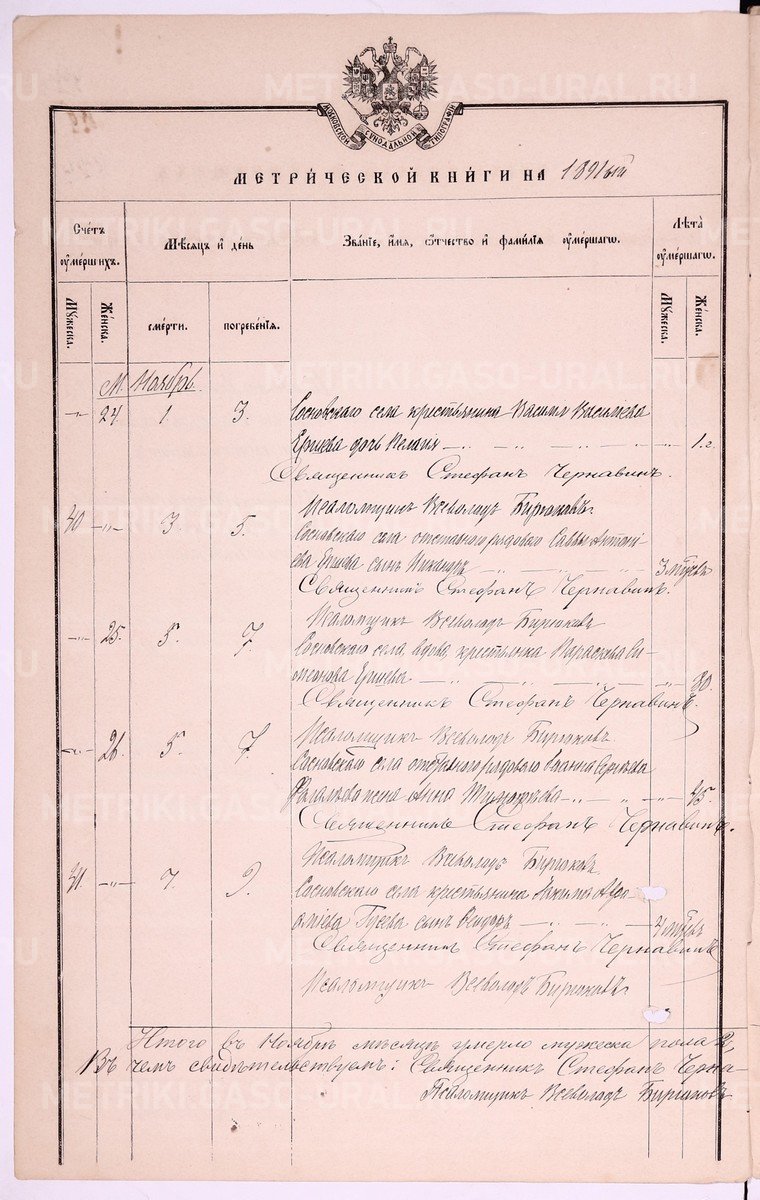 МОСКОВСКОЙ СѴНОДАЛЬНОЙ ТИПОГРАФІИ
МЕТРИ́ЧЕСКОЙ КНИ́ГИ НА 1891ый
Сче́тъ ᲂу҆ме́ршихъ.
Мѣ́сяцъ и҆ де́нь
Зва́нїе, и҆́мя, ѻ҆́тчество и҆ фамилїя ᲂу҆ме́ршагѡ.
Лѣ́та ᲂу҆ме́ршагѡ.
Мꙋ́жеска.
Же́нска.
сме́рти.
погребе́нїя.
Мꙋ́жеска.
Же́нска.
М. Ноябрь.
-"- 24 1 3. Сосновскаго села крестьянина Василія Васильева
дочь Пелагія -"- 1.г.
Священникъ Стефанъ Чернавинъ.
Псаломщикъ Всеволодъ Бирюковъ.
40 -"- 3. 5. Сосновскаго села отставного рядового Саввы Антоні-
ева сынъ Никаноръ 3 мѣсяц
Священникъ Стефанъ Чернавинъ.
Псаломщикъ Всеволодъ Бирюковъ
-"- 25. 5. 7. Сосновскаго села вдова, крестьянка Параскева Си-
меонова 80.
Священникъ Стефанъ Чернавинъ.
Псаломщикъ Всеволодъ Бирюковъ
-"- 26. 5. 7. Сосновскаго села отставного рядового Іоанна
жена Анна Тимофѣева -"- 45.
Священникъ Стефанъ Чернавинъ.
Псаломщикъ Всеволодъ Бирюковъ.
41. -"- 7. 9. Сосновскаго села крестьянина Іакима Авра-
аміева Гусева сынъ Исидоръ
Священникъ Стефанъ Чернавинъ
Псаломщикъ Всеволодъ Бирюковъ
Итого въ Ноябрѣ мѣсяцѣ умерло мужеска пола 2,
Въ чемъ свидѣтельствуемъ: Священникъ Стефанъ Черна-
Псаломщикъ Всеволодъ Бирюковъ
METRIKI.GASO-URAL.RU